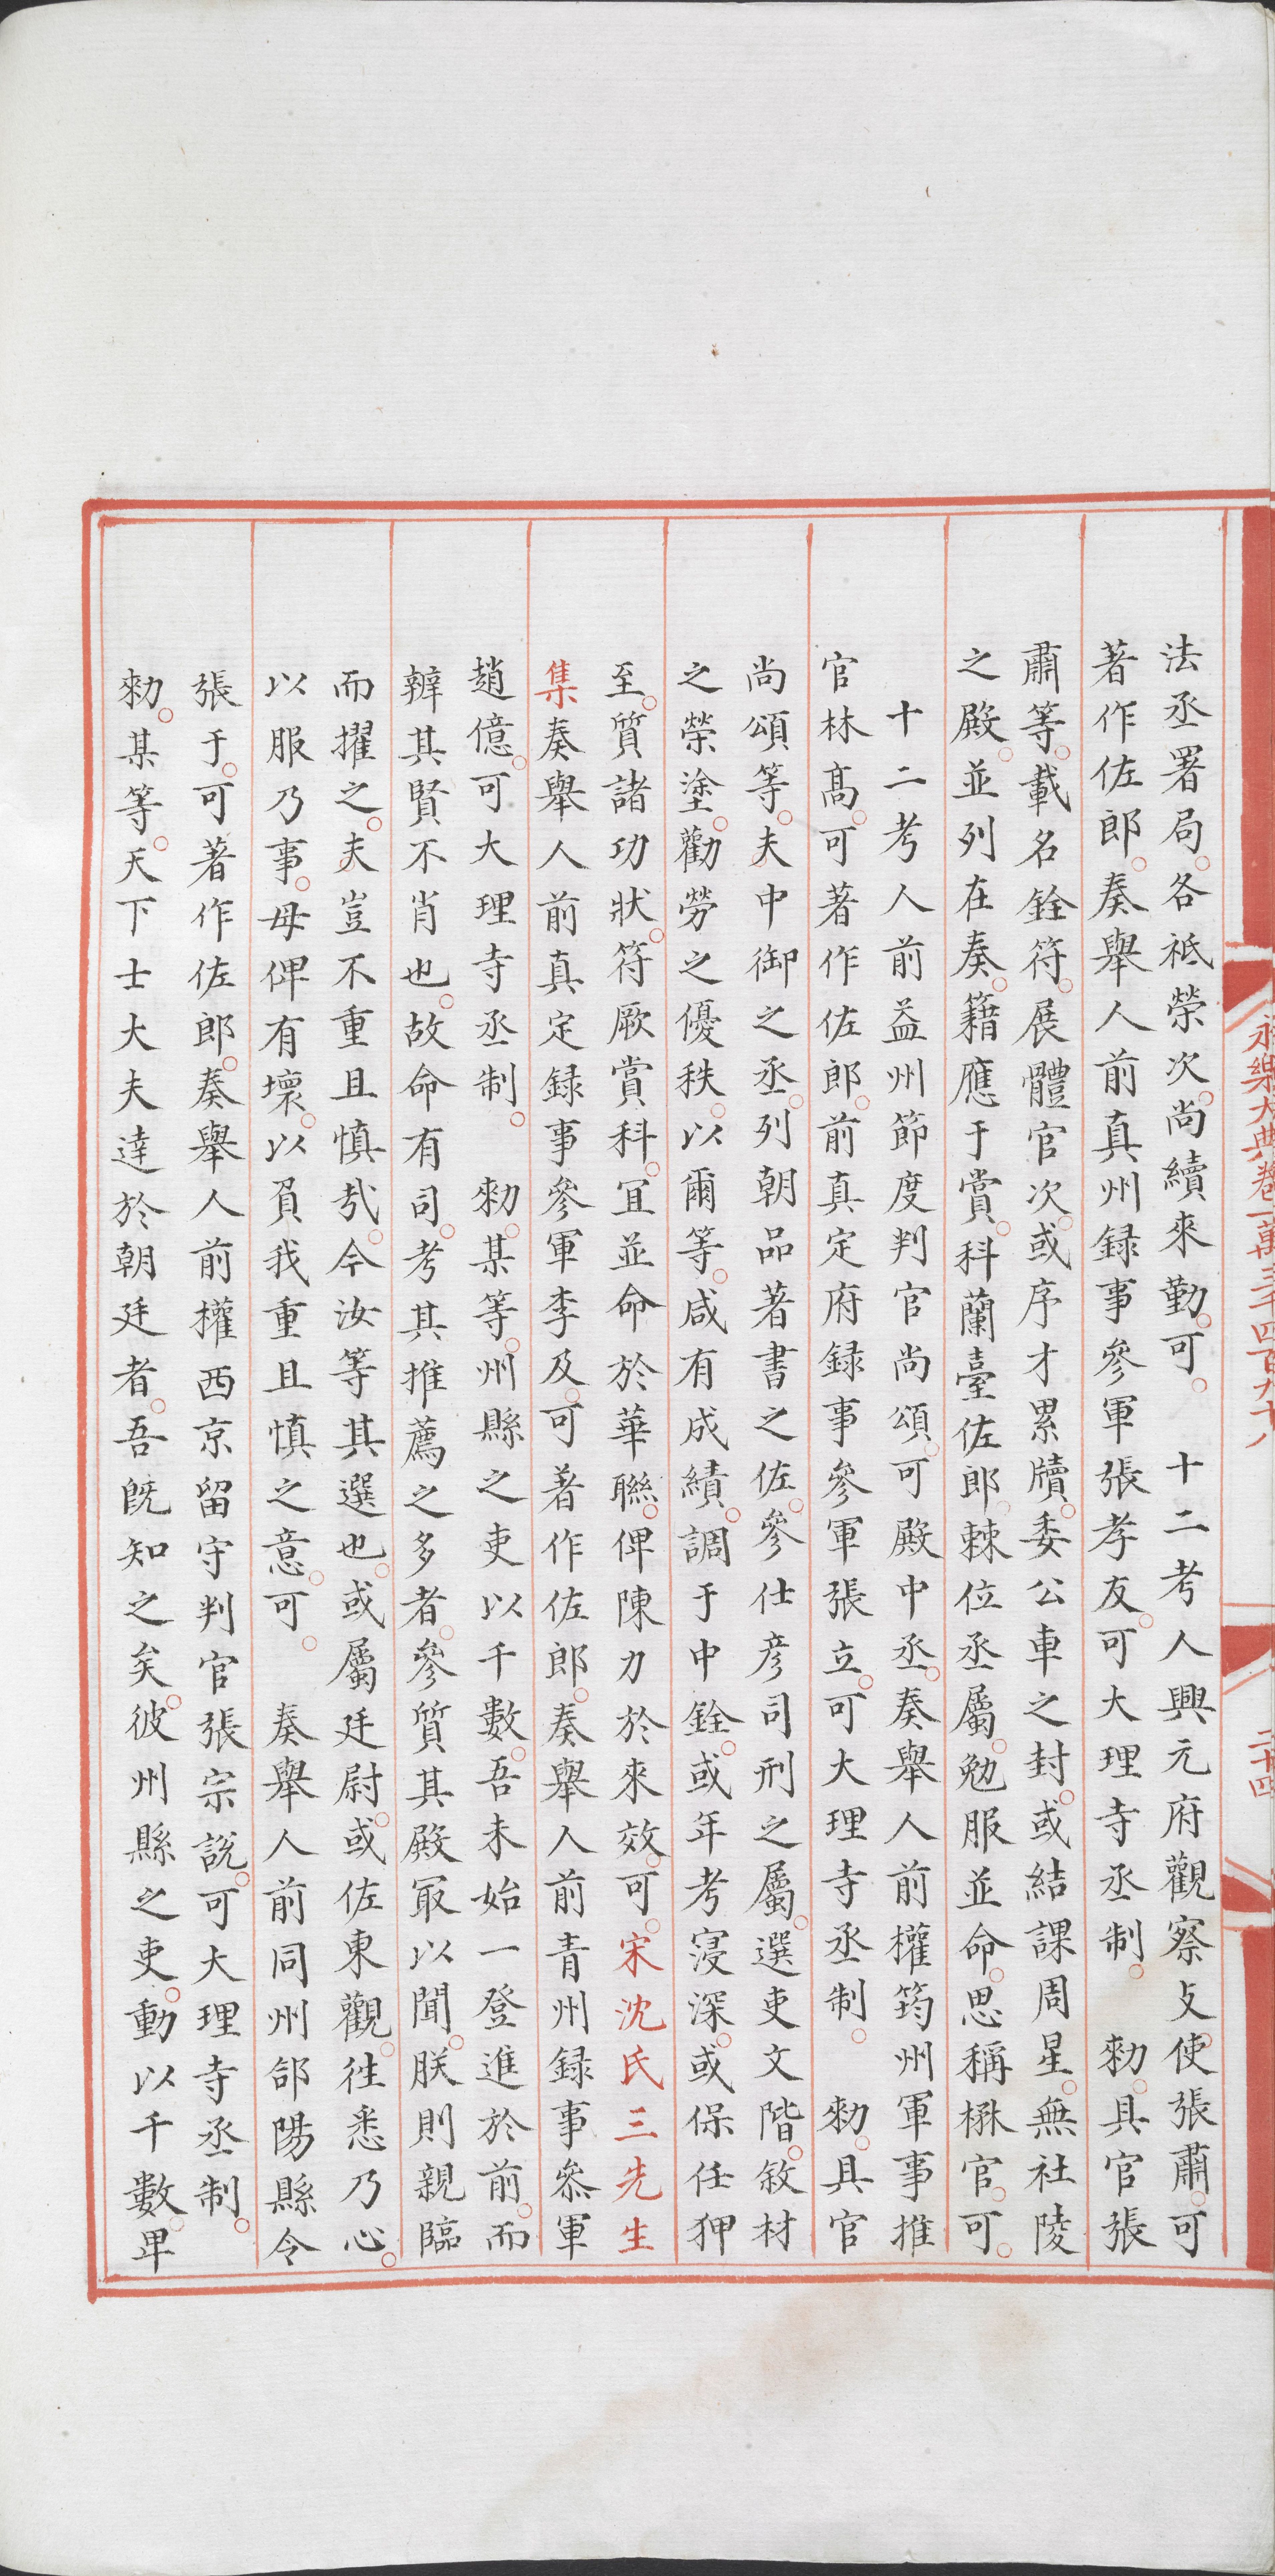 永樂大典卷一萬三千四百九十八
二十四
法丞署局。各祗榮次。尚續來勤。可。 十二考人興元府觀察支使張肅。可
著作佐郎。奏舉人前真州録事參軍張孝友。可大理寺丞制。 勑。具官張
肅等。載名銓符。展體官次。或序才累牘。委公車之封。或結課周星。無社陵
之殿。並列在奏。籍應于賞。科蘭臺佐郎。棘位丞屬。勉服並命。思稱楙官。可。
十二考人前益州節度判官尚頌。可殿中丞。奏舉人前權筠州軍事推
官林高。可著作佐郎。前真定府録事參軍張立。可大理寺丞制。 勑。具官
尚頌等。夫中御之丞。列朝品著書之佐。參仕彦司刑之屬。選吏文階。敘材
之榮塗。勸勞之優秩。以爾等。咸有成績。調于中銓。或年考寖深。或保任狎
至。質諸功狀。符厥賞科。宜並命於華聯。俾陳力於來效。可。宋沈氏三先生
集奏舉人前真定録事參軍李及。可著作佐郎。奏舉人前青州録事叅軍
趙億。可大理寺丞制。 勑。某等。州縣之吏以千數。吾未始一登進於前。而
辨其賢不肖也。故命有司。考其推薦之多者。參質其殿㝡以聞。朕則親臨
而擢之。夫豈不重且慎㢤。今汝等其選也。或屬廷尉。或佐東觀。徃悉乃心。
以服乃事。毋俾有壞。以負我重且慎之意。可。 奏舉人前同州郃陽縣令
張于。可著作佐郎。奏舉人前權西京留守判官張宗說。可大理寺丞制。
勑。某等。天下士大夫達於朝廷者。吾既知之矣。彼州縣之吏。動以千數。畢